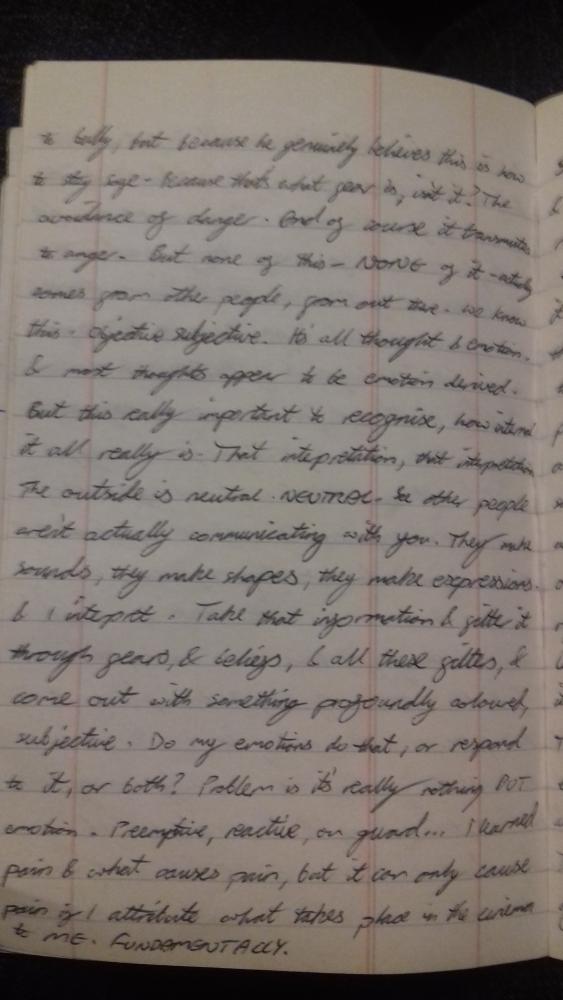 to bully, but because he genuinely believes this is how
to stay safe - because that's what fear is, isn't it? The
avoidance of danger. And of course it transmutes
to anger. But none of this - NONE of it - actually
comes from other people, from out there. We know
this - objective subjective. It's all thought & emotion.
& most thoughts appear to be emotion derived.
But this really important to recognise, how internal
it all really is. That intepretation, that interpretation
The outside is neutral. NEUTRAL. So other people
aren't actually communicating with you. They make
sounds, they make shapes, they make expressions.
& I interpret. Take that information & filter it
through fears, & beliefs, & all these filters, &
come out with something profoundly coloured,
subjective. Do my emotions do that, or respond
to it, or both? Problem is it's really nothing BUT
emotion. Preemptive, reactive, on guard... I learned
pain & what causes pain, but it can only cause
pain if I attribute what takes place in the cinema
to ME. FUNDAMENTALLY.